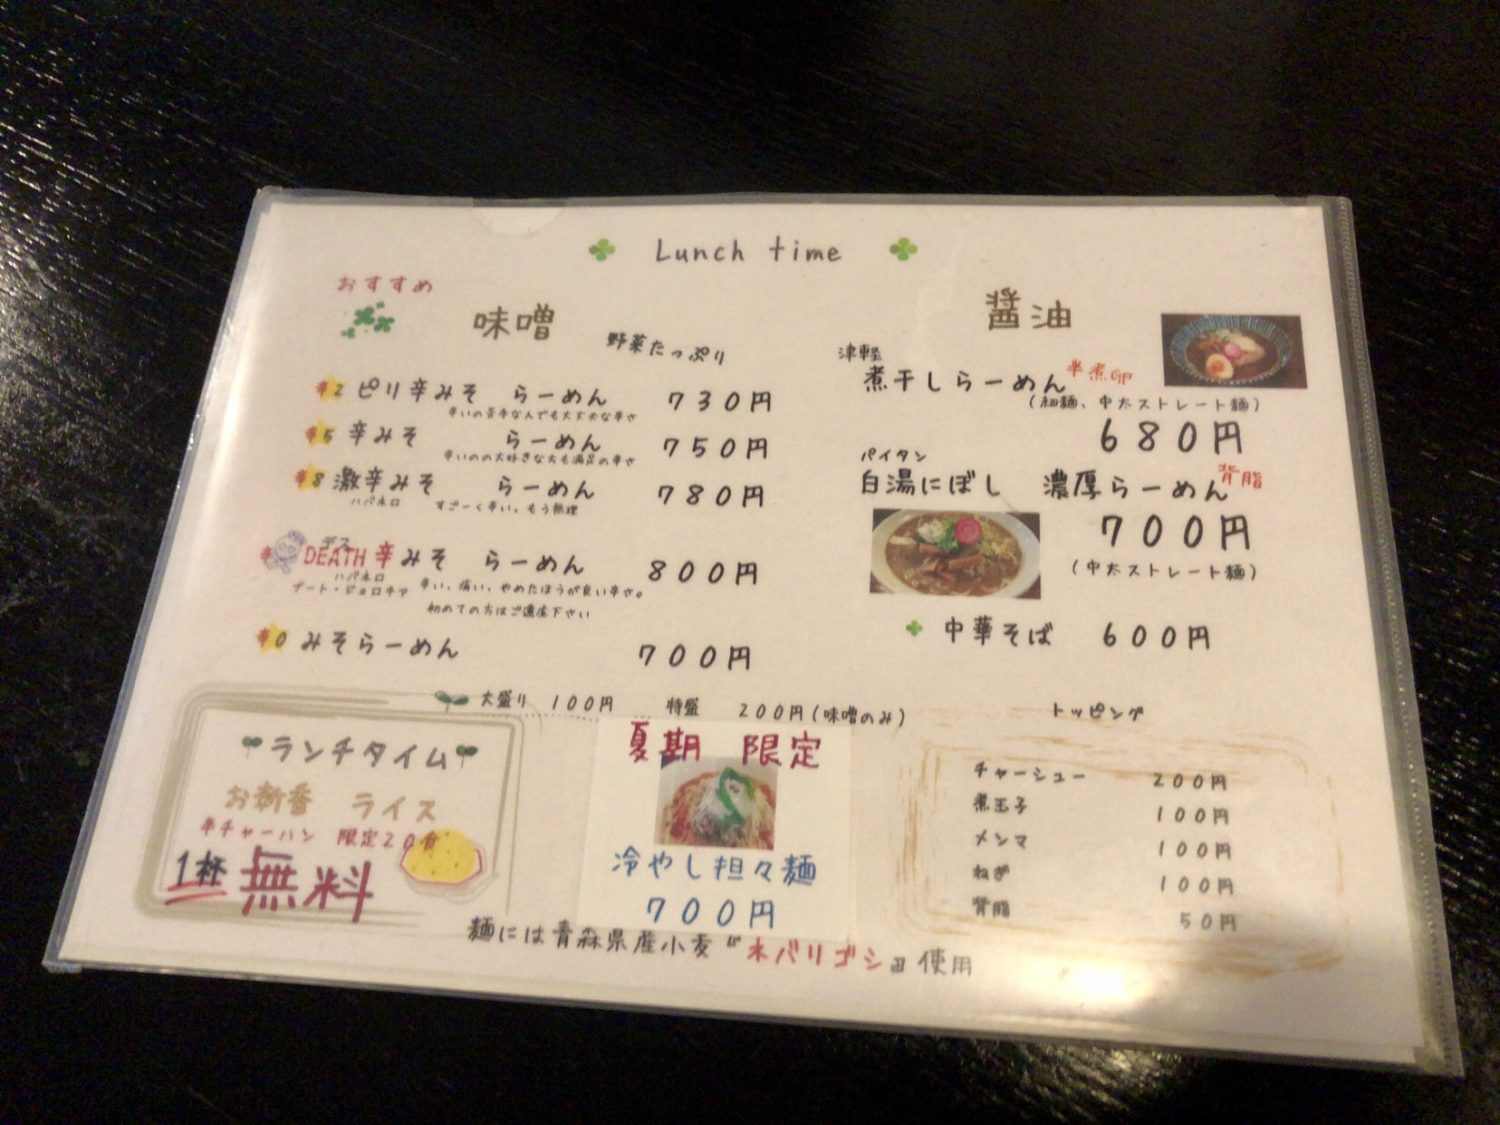 Lunch time
おすすめ
味噌
野菜たっぷり
辛2 ピリ辛みそ らーめん 730円
辛いの苦手な人でも大丈夫な辛さ
辛5 辛みそ らーめん 750円
辛いのの大好きな方も満足の辛さ
辛8 激辛みそ らーめん 780円
ハバネロ すごーく辛い、もう無理
デス
DEATH 辛みそ らーめん 800円
ハバネロ
ブート・ジョロキア 辛い、痛い、やめたほうが良い辛さ。
初めての方はご遠慮下さい
辛0 みそらーめん 700円
大盛り 100円 特盛 200円(味噌のみ)
醤油
津軽
煮干しらーめん 半煮卵
(細麺、中太ストレート麺)
680円
パイタン
白湯にぼし 濃厚らーめん 背脂
700円
(中太ストレート麺)
中華そば 600円
ランチタイム
お新香 ライス
半チャーハン 限定20食
1杯 無料
夏期 限定
冷やし担々麺
700円
トッピング
チャーシュー 200円
煮玉子 100円
メンマ 100円
ねぎ 100円
背脂 50円
麺には青森県産小麦〝ネバリゴシ〟使用